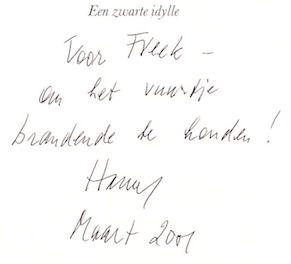 Een zwarte idylle
Voor Freek –
om het vuurtje
brandende te houden!
Hanny
Maart 2001